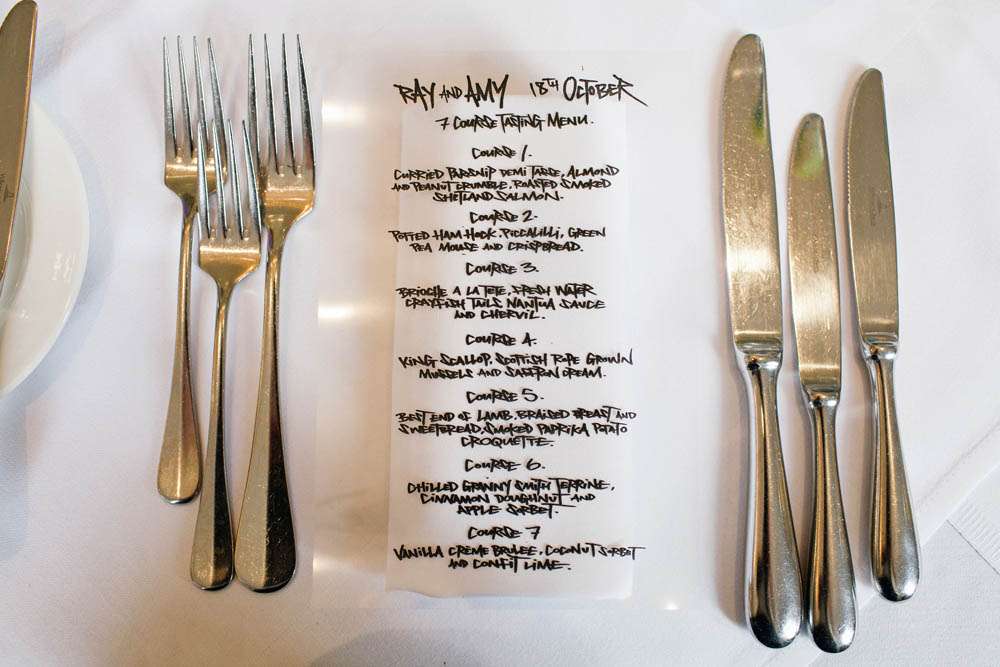 RAY AND AMY 18TH OCTOBER
7 COURSE TASTING MENU.
COURSE 1.
CURRIED PARSNIP DEMI TASSE, ALMOND
AND PEANUT CRUMBLE, ROASTED SMOKED
SHETLAND SALMON.
COURSE 2.
POTTED HAM HOCK. PICCALILLI, GREEN
PEA MOUSE AND CRISPBREAD.
COURSE 3.
BRIOCHE A LA TETE, FRESH WATER
CRAYFISH TAILS NANTUA SAUCE
AND CHERVIL.
COURSE 4.
KING SCALLOP, SCOTTISH ROPE GROWN
MUSSELS AND SAFFRON CREAM.
COURSE 5.
BEST END OF LAMB, BRAISED BREAST AND
SWEETBREAD, SMOKED PAPRIKA POTATO
CROQUETTE.
COURSE 6.
CHILLED GRANNY SMITH TERRINE,
CINNAMON DOUGHNUT AND
APPLE SORBET.
COURSE 7
VANILLA CRÈME BRULEE, COCONUT SORBET
AND CONFIT LIME.